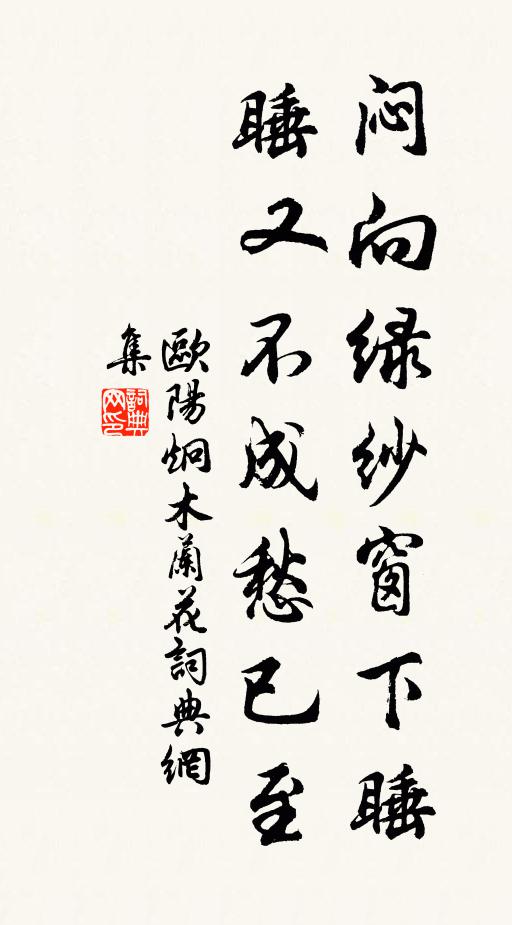 闷向绿纱窗下睡
睡又不成愁已至
歐陽炯木蘭花詞典網
集
詞典
网印